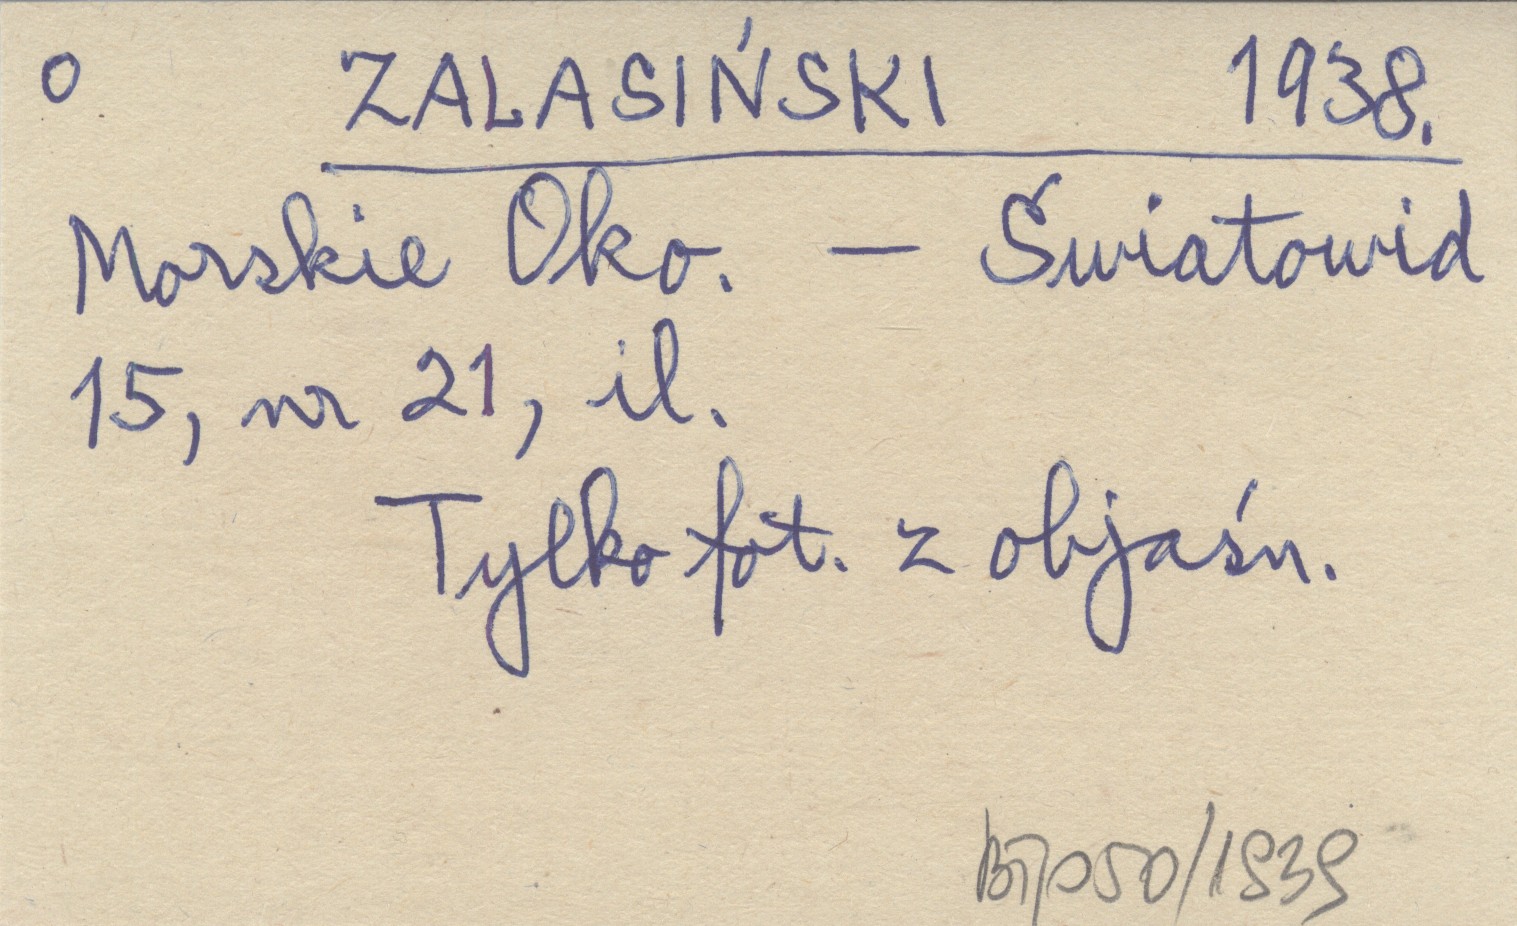 o ZALASIŃSKI 1938.
Morskie Oko. — Światowid
15, nr 21, il.
Tylko fot. z objaśn.